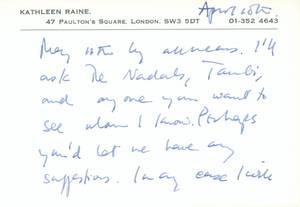 KATHLEEN RAINE.
47 PAULTON'S SQUARE, LONDON. SW3 5DT 01-352 4643
April 10th
May 10th by all means. I'll
ask the Nadals, Tambi,
and anyone you want to
see whom I know. Perhaps
you'd let me have any
suggestions. In any case I will